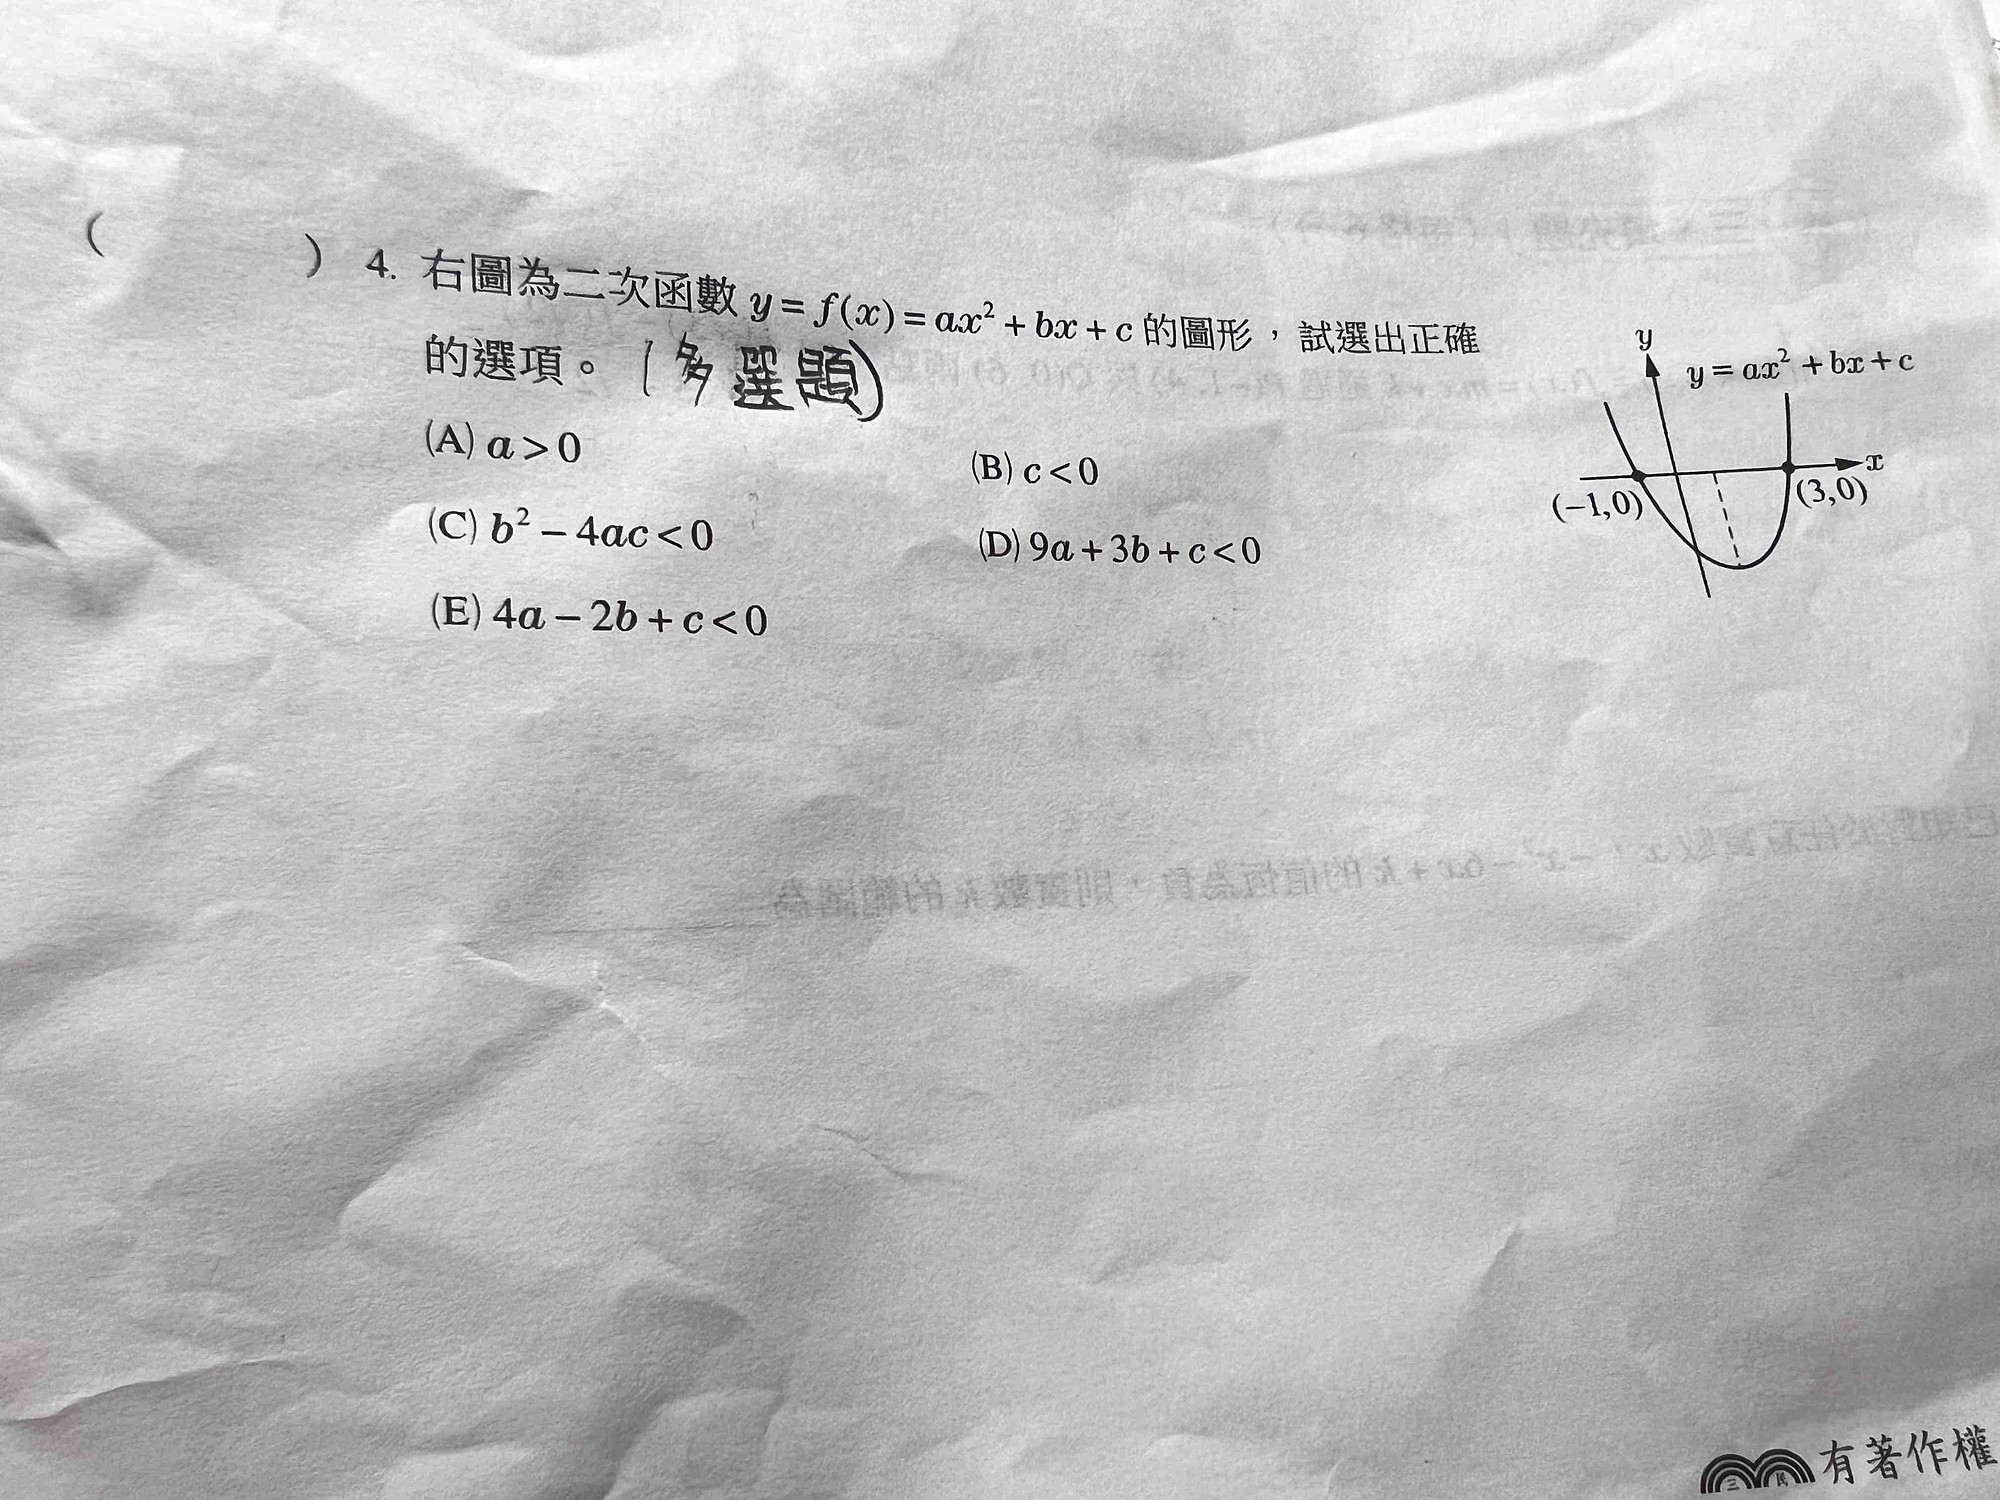 (　　　) 4. 右圖為二次函數 y = f(x) = ax² + bx + c 的圖形，試選出正確
的選項。(多選題)
(A) a > 0
(B) c < 0
(C) b² − 4ac < 0
(D) 9a + 3b + c < 0
(E) 4a − 2b + c < 0
y
y = ax² + bx + c
x
(−1,0)
(3,0)
三民
有著作權